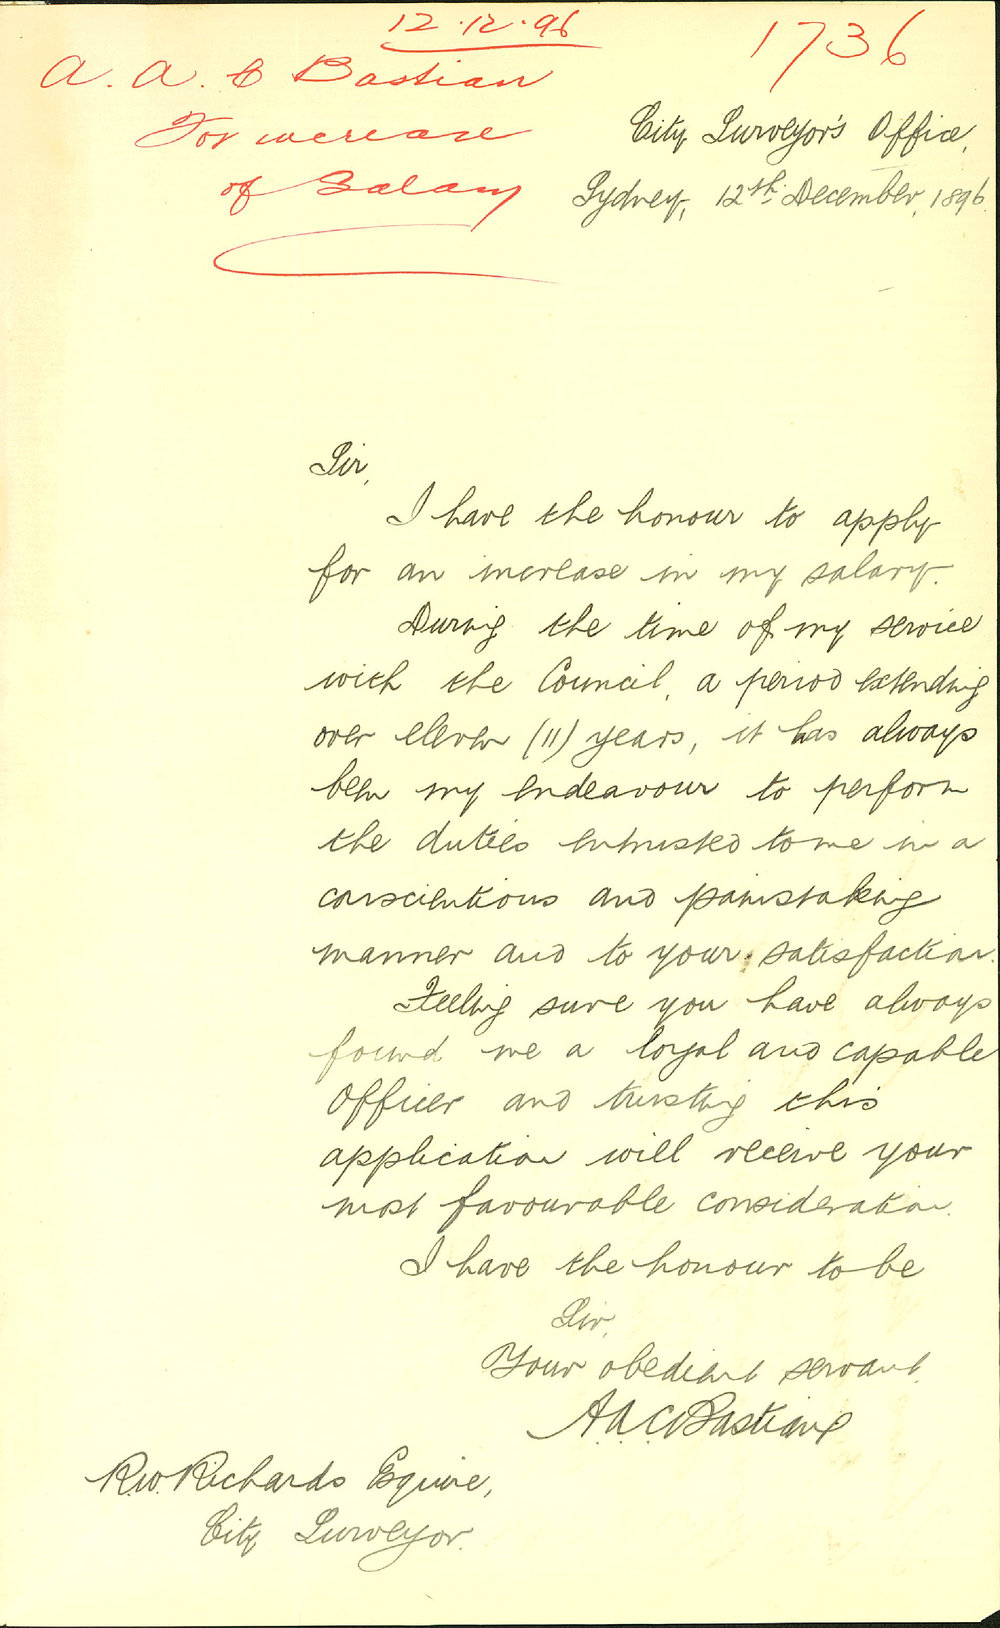 12.12.96
1736
A. A. C Bastian
For increase
of Salary
City Surveyor's Office,
Sydney, 12th December, 1896.
Sir,
I have the honour to apply
for an increase in my salary.
During the time of my service
with the Council, a period extending
over eleven (11) years, it has always
been my endeavour to perform
the duties entrusted to me in a
conscientious and painstaking
manner and to your satisfaction.
Feeling sure you have always
found me a loyal and capable
Officer and trusting this
application will receive your
most favourable consideration.
I have the honour to be
Sir,
Your obedient servant.
A.A.C. Bastian
R.W. Richards Esquire,
City Surveyor.